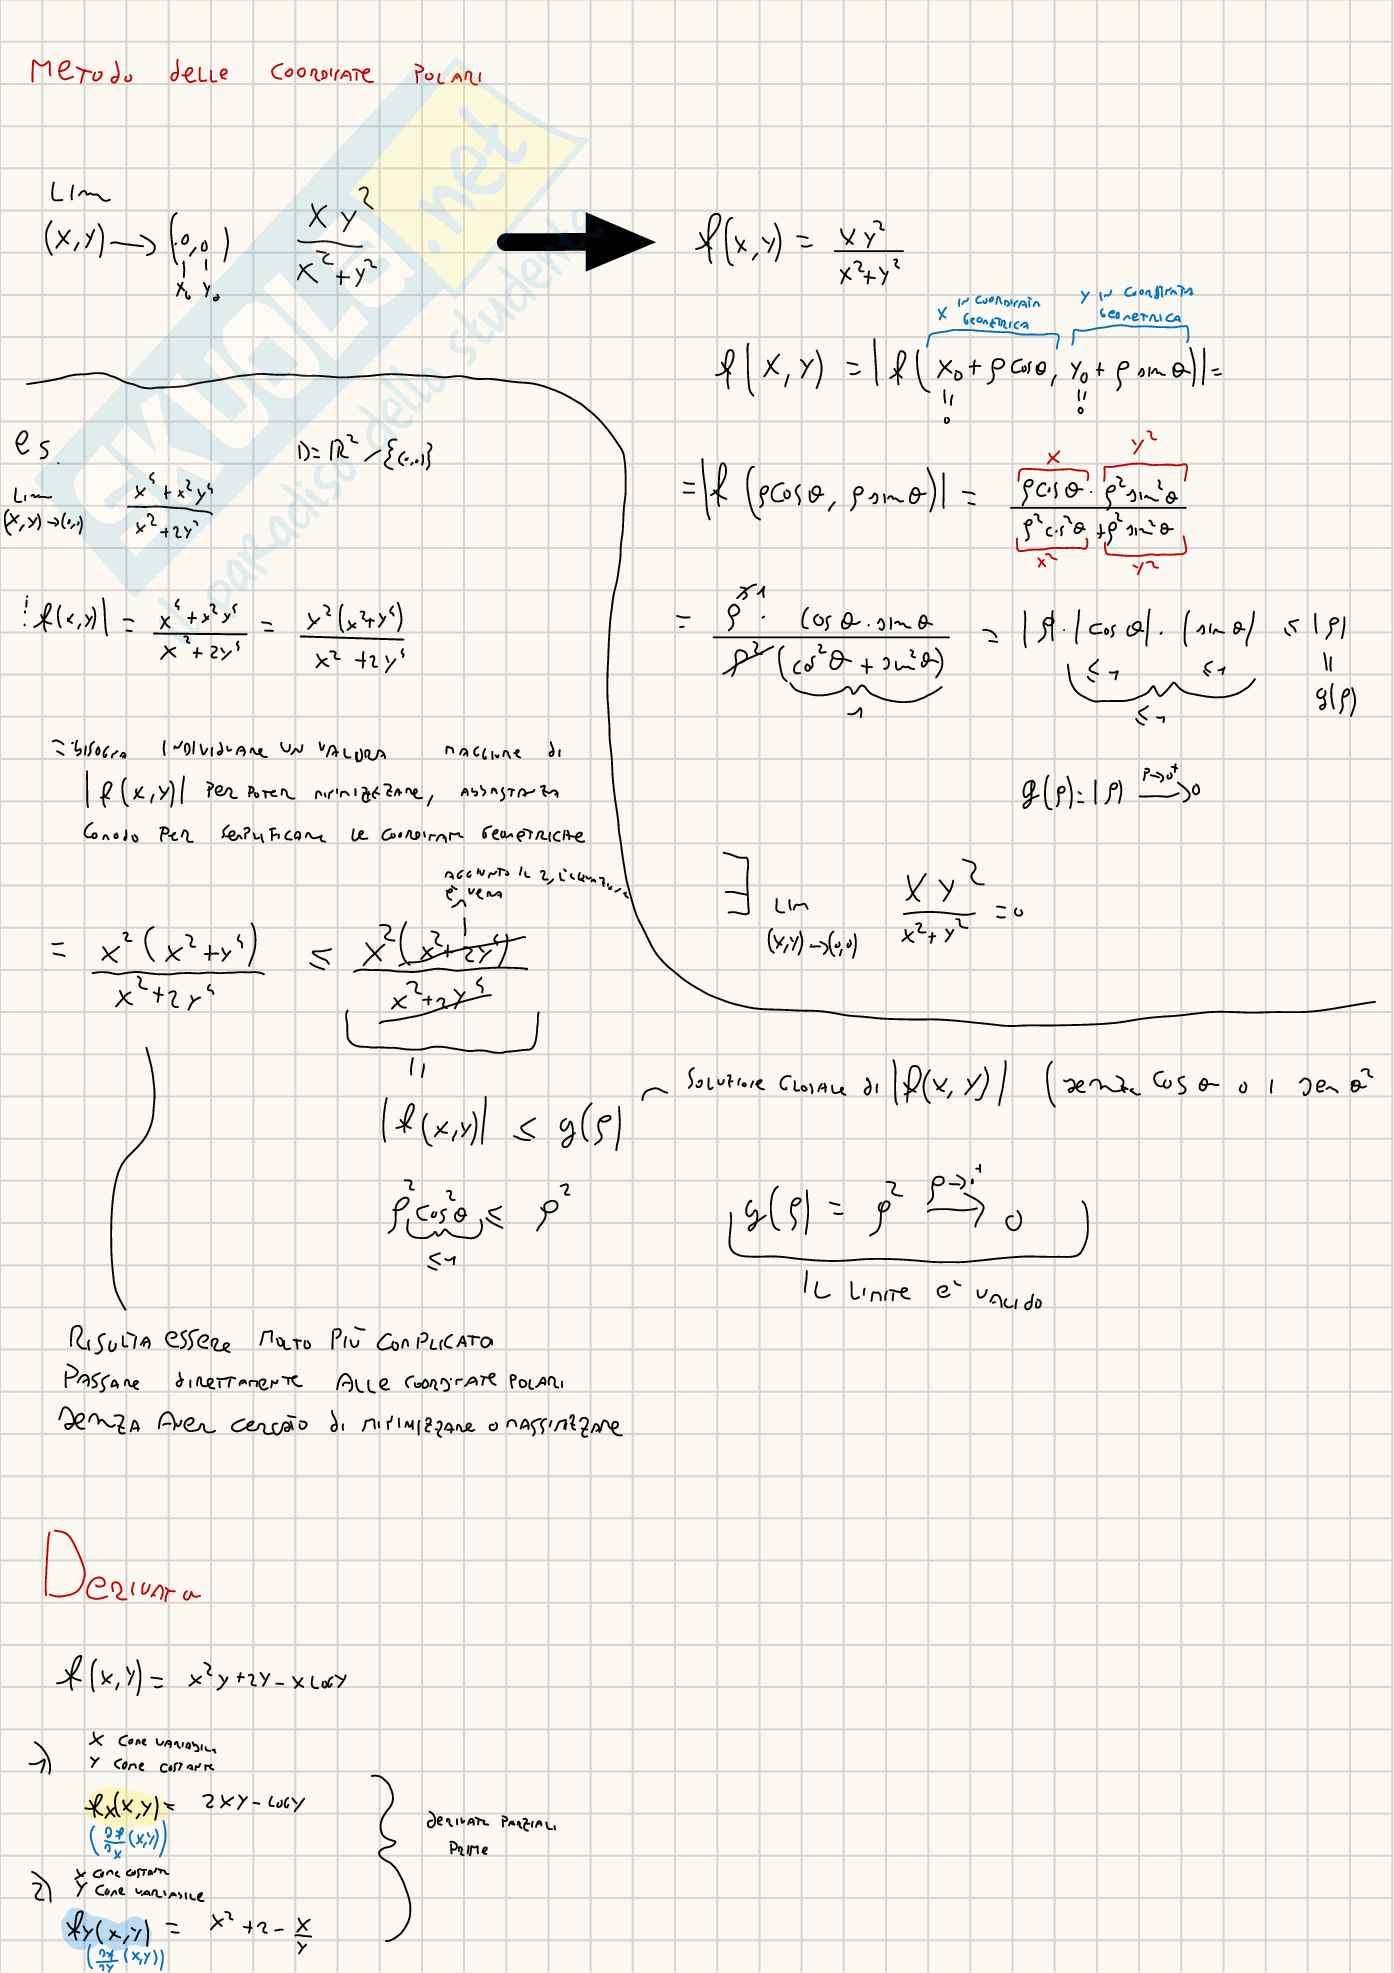 METODO DELLE COORDINATE POLARI
Lim
(x,y) → (0,0)   x y² / x²+y²
x₀ y₀
f(x,y) = xy² / x²+y²
x IN COORDINATA GEOMETRICA   y IN COORDINATA GEOMETRICA
f(x,y) = |f(x₀ + ρ cos θ, y₀ + ρ sin θ)| =
= 0   = 0
= |f (ρ cos θ, ρ sin θ)| = ρ cos θ · ρ² sin² θ / ρ² cos² θ + ρ² sin² θ
x   y²
x²   y²
= ρ · cos θ · sin θ / ρ² (cos² θ + sin² θ) = |ρ| · |cos θ| · |sin θ| ≤ |ρ|
1   ≤1   ≤1   ≤1   = g(ρ)
g(ρ) = |ρ| ρ→0⁺ → 0
∃ Lim (x,y)→(0,0) x y² / x²+y² = 0
es.   D = ℝ² / {(0,0)}
Lim
(x,y)→(0,0)
|f(x,y)| =
= BISOGNA INDIVIDUARE UN VALORE MAGGIORE DI
|f(x,y)| PER POTER MINIMIZZARE, ABBASTANZA
COMODO PER SEMPLIFICARE LE COORDINATE GEOMETRICHE
AGGIUNTO IL 2,
È VERA
|f(x,y)| ≤ g(ρ)
SOLUZIONE GLOBALE DI |f(x,y)| (senza cos θ o i sen θ²
ρ² cos² θ ≤ ρ²
≤1
g(ρ) = ρ² ρ→0⁺ → 0
IL LIMITE E' VALIDO
RISULTA ESSERE MOLTO PIÙ COMPLICATO
PASSARE DIRETTAMENTE ALLE COORDINATE POLARI
SENZA AVER CERCATO DI MINIMIZZARE O MASSIMIZZARE
DERIVATA
f(x,y) = x²y + 2y - x LOG y
1) x COME VARIABILE
y COME COSTANTE
fx(x,y) = 2xy - LOG y
(∂f/∂x (x,y))
DERIVATE PARZIALI
PRIME
2) x COME COSTANTE
y COME VARIABILE
fy(x,y) = x² + 2 - x/y
(∂f/∂y (x,y))
SKUOLA.net
il paradiso dello studente